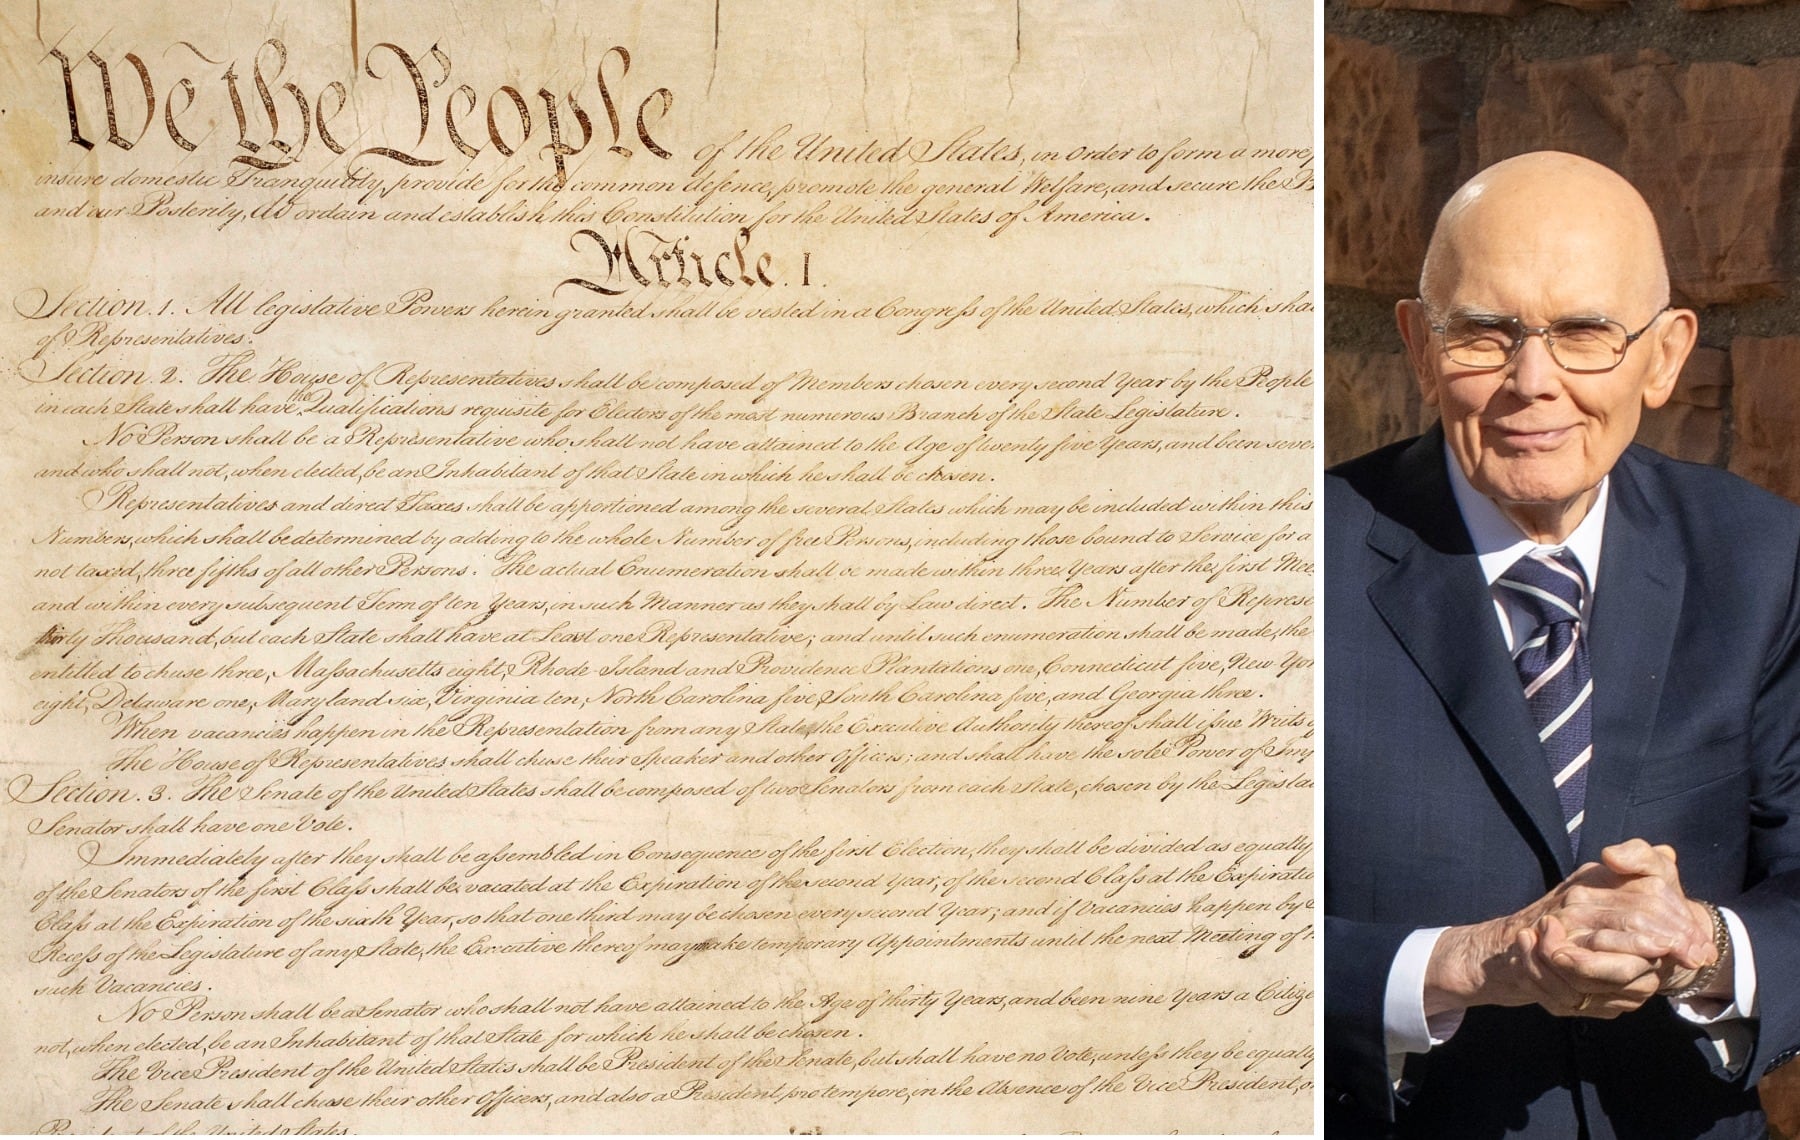 We the People of the United States, in Order to form a more
insure domestic Tranquility, provide for the common defence, promote the general Welfare, and secure the
and our Posterity, do ordain and establish this Constitution for the United States of America.
Article. I.
Section. 1. All legislative Powers herein granted shall be vested in a Congress of the United States, which sha
of Representatives.
Section. 2. The House of Representatives shall be composed of Members chosen every second Year by the People
in each State shall have the Qualifications requisite for Electors of the most numerous Branch of the State Legislature.
No Person shall be a Representative who shall not have attained to the Age of twenty five Years, and been seven
and who shall not, when elected, be an Inhabitant of that State in which he shall be chosen.
Representatives and direct Taxes shall be apportioned among the several States which may be included within this
Numbers, which shall be determined by adding to the whole Number of free Persons, including those bound to Service for a
not taxed, three fifths of all other Persons. The actual Enumeration shall be made within three Years after the first Mee
and within every subsequent Term of ten Years, in such Manner as they shall by Law direct. The Number of Represe
thirty Thousand, but each State shall have at Least one Representative; and until such enumeration shall be made, the
entitled to chuse three, Massachusetts eight, Rhode-Island and Providence Plantations one, Connecticut five, New-Yor
eight, Delaware one, Maryland six, Virginia ten, North Carolina five, South Carolina five, and Georgia three.
When vacancies happen in the Representation from any State, the Executive Authority thereof shall issue Writs
The House of Representatives shall chuse their Speaker and other Officers; and shall have the sole Power of Imp
Section. 3. The Senate of the United States shall be composed of two Senators from each State, chosen by the Legisla
Senator shall have one Vote.
Immediately after they shall be assembled in Consequence of the first Election, they shall be divided as equally
of the Senators of the first Class shall be vacated at the Expiration of the second Year, of the second Class at the Expiratio
Class at the Expiration of the sixth Year, so that one third may be chosen every second Year; and if Vacancies happen by
Recess of the Legislature of any State, the Executive thereof may make temporary Appointments until the next Meeting of
such Vacancies.
No Person shall be a Senator who shall not have attained to the Age of thirty Years, and been nine Years a Citize
not, when elected, be an Inhabitant of that State for which he shall be chosen.
The Vice President of the United States shall be President of the Senate, but shall have no Vote, unless they be equally
The Senate shall chuse their other Officers, and also a President pro tempore, in the Absence of the Vice President, o
President of the United States.